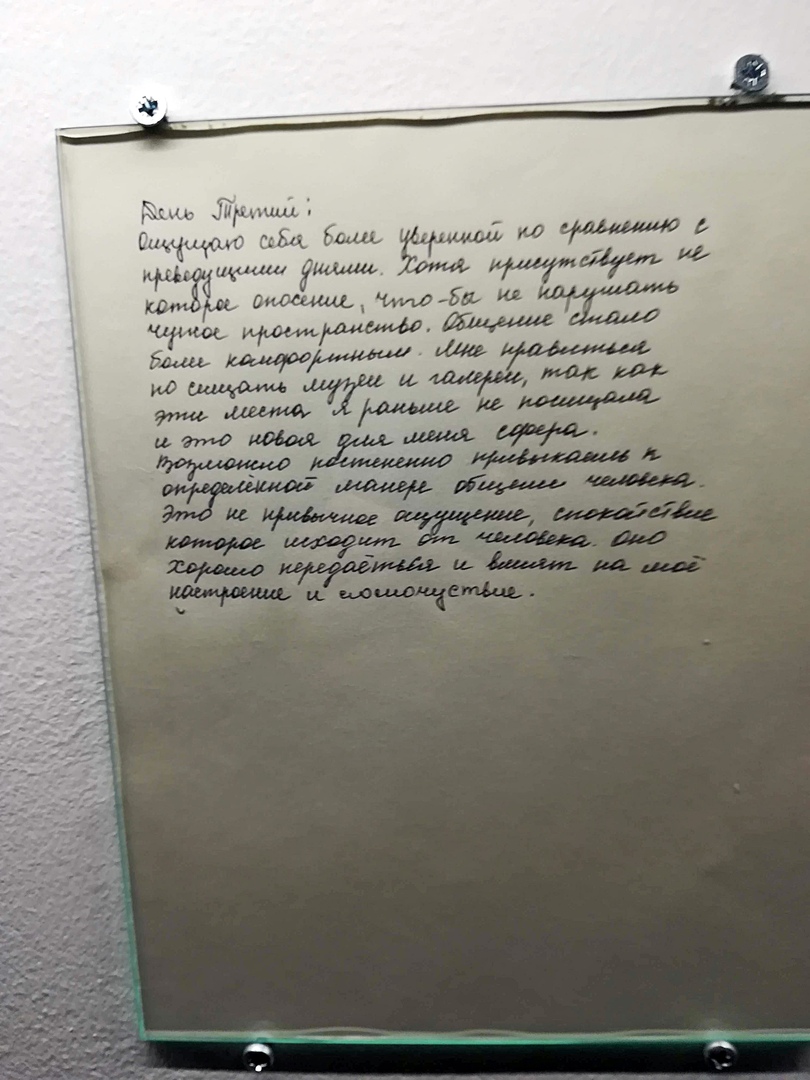 День Третий:
Ощущаю себя более уверенной по сравнению с
преведущими днями. Хотя присутствует не
которое опосение, что-бы не нарушать
чужое пространство. Общение стало
более комфортным. Мне нравиться
по сищать музеи и галереи, так как
эти места я раньше не посищала
и это новая для меня сфера.
Возможно постепенно привыкаешь к
определённой манере общении человека.
Это не привычное ощущение, спокойствие
которое исходит от человека. оно
хорошо передаётьья и влияят на моё
настроение и самочуствие.